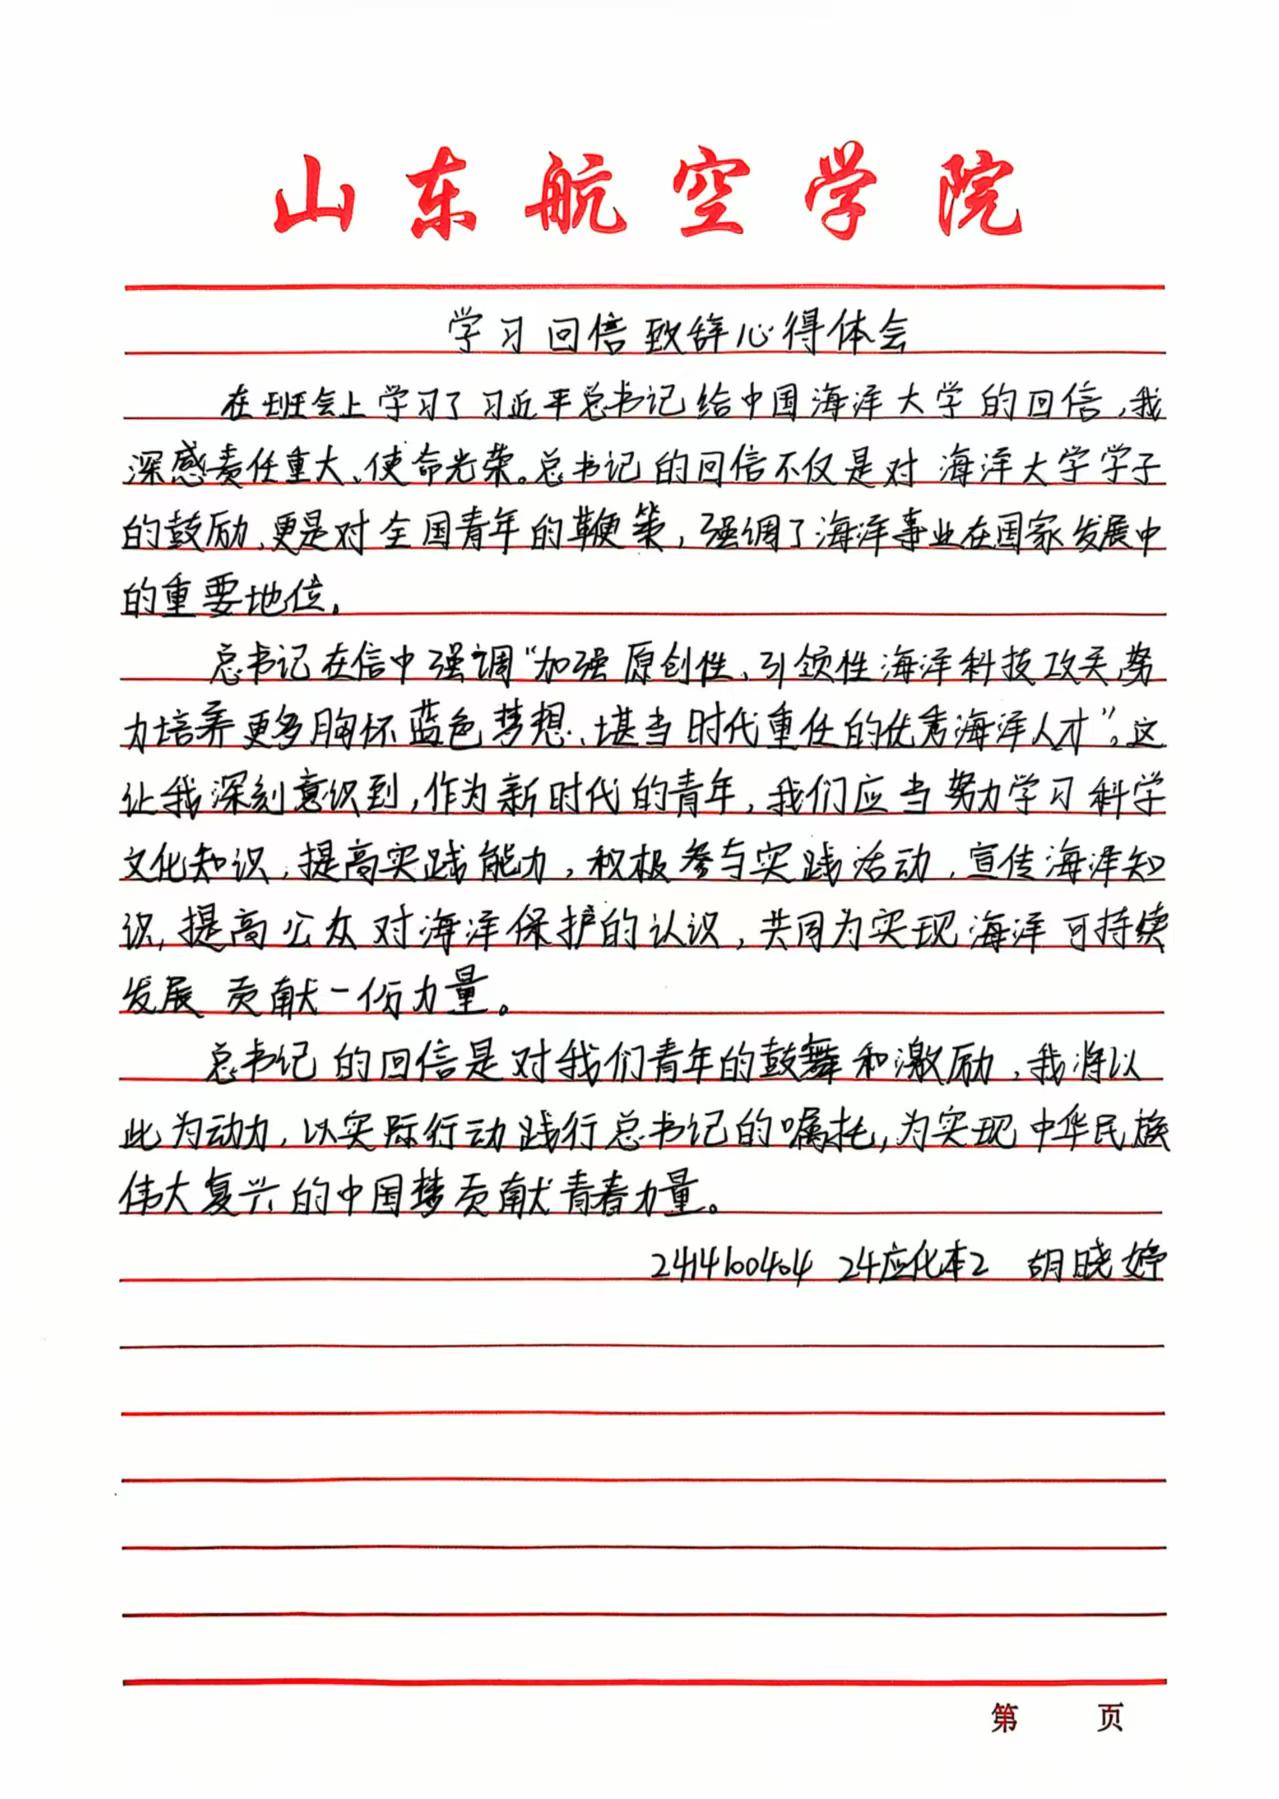 山东航空学院
学习回信致辞心得体会
在班会上学习了习近平总书记给中国海洋大学的回信，我
深感责任重大、使命光荣。总书记的回信不仅是对海洋大学学子
的鼓励，更是对全国青年的鞭策，强调了海洋事业在国家发展中
的重要地位。
总书记在信中强调“加强原创性、引领性海洋科技攻关，努
力培养更多胸怀蓝色梦想、堪当时代重任的优秀海洋人才”。这
让我深刻意识到，作为新时代的青年，我们应当努力学习科学
文化知识，提高实践能力，积极参与实践活动，宣传海洋知
识，提高公众对海洋保护的认识，共同为实现海洋可持续
发展贡献一份力量。
总书记的回信是对我们青年的鼓舞和激励，我将以
此为动力，以实际行动践行总书记的嘱托，为实现中华民族
伟大复兴的中国梦贡献青春力量。
2414100404 24应化本2 胡晓婷
第 页